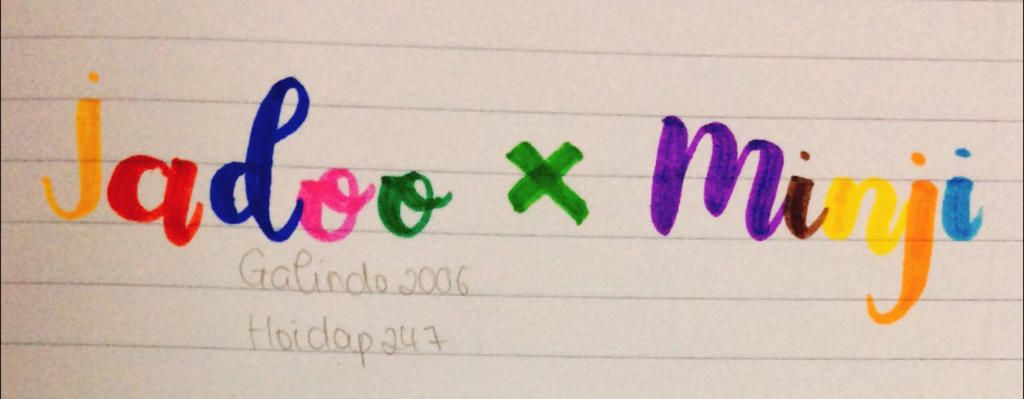 Jadoo × Minji
Galindo2006
Hoidap247